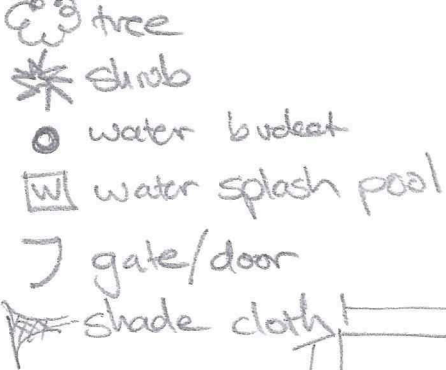 tree
shrub
water bucket
W water splash pool
gate/door
shade cloth